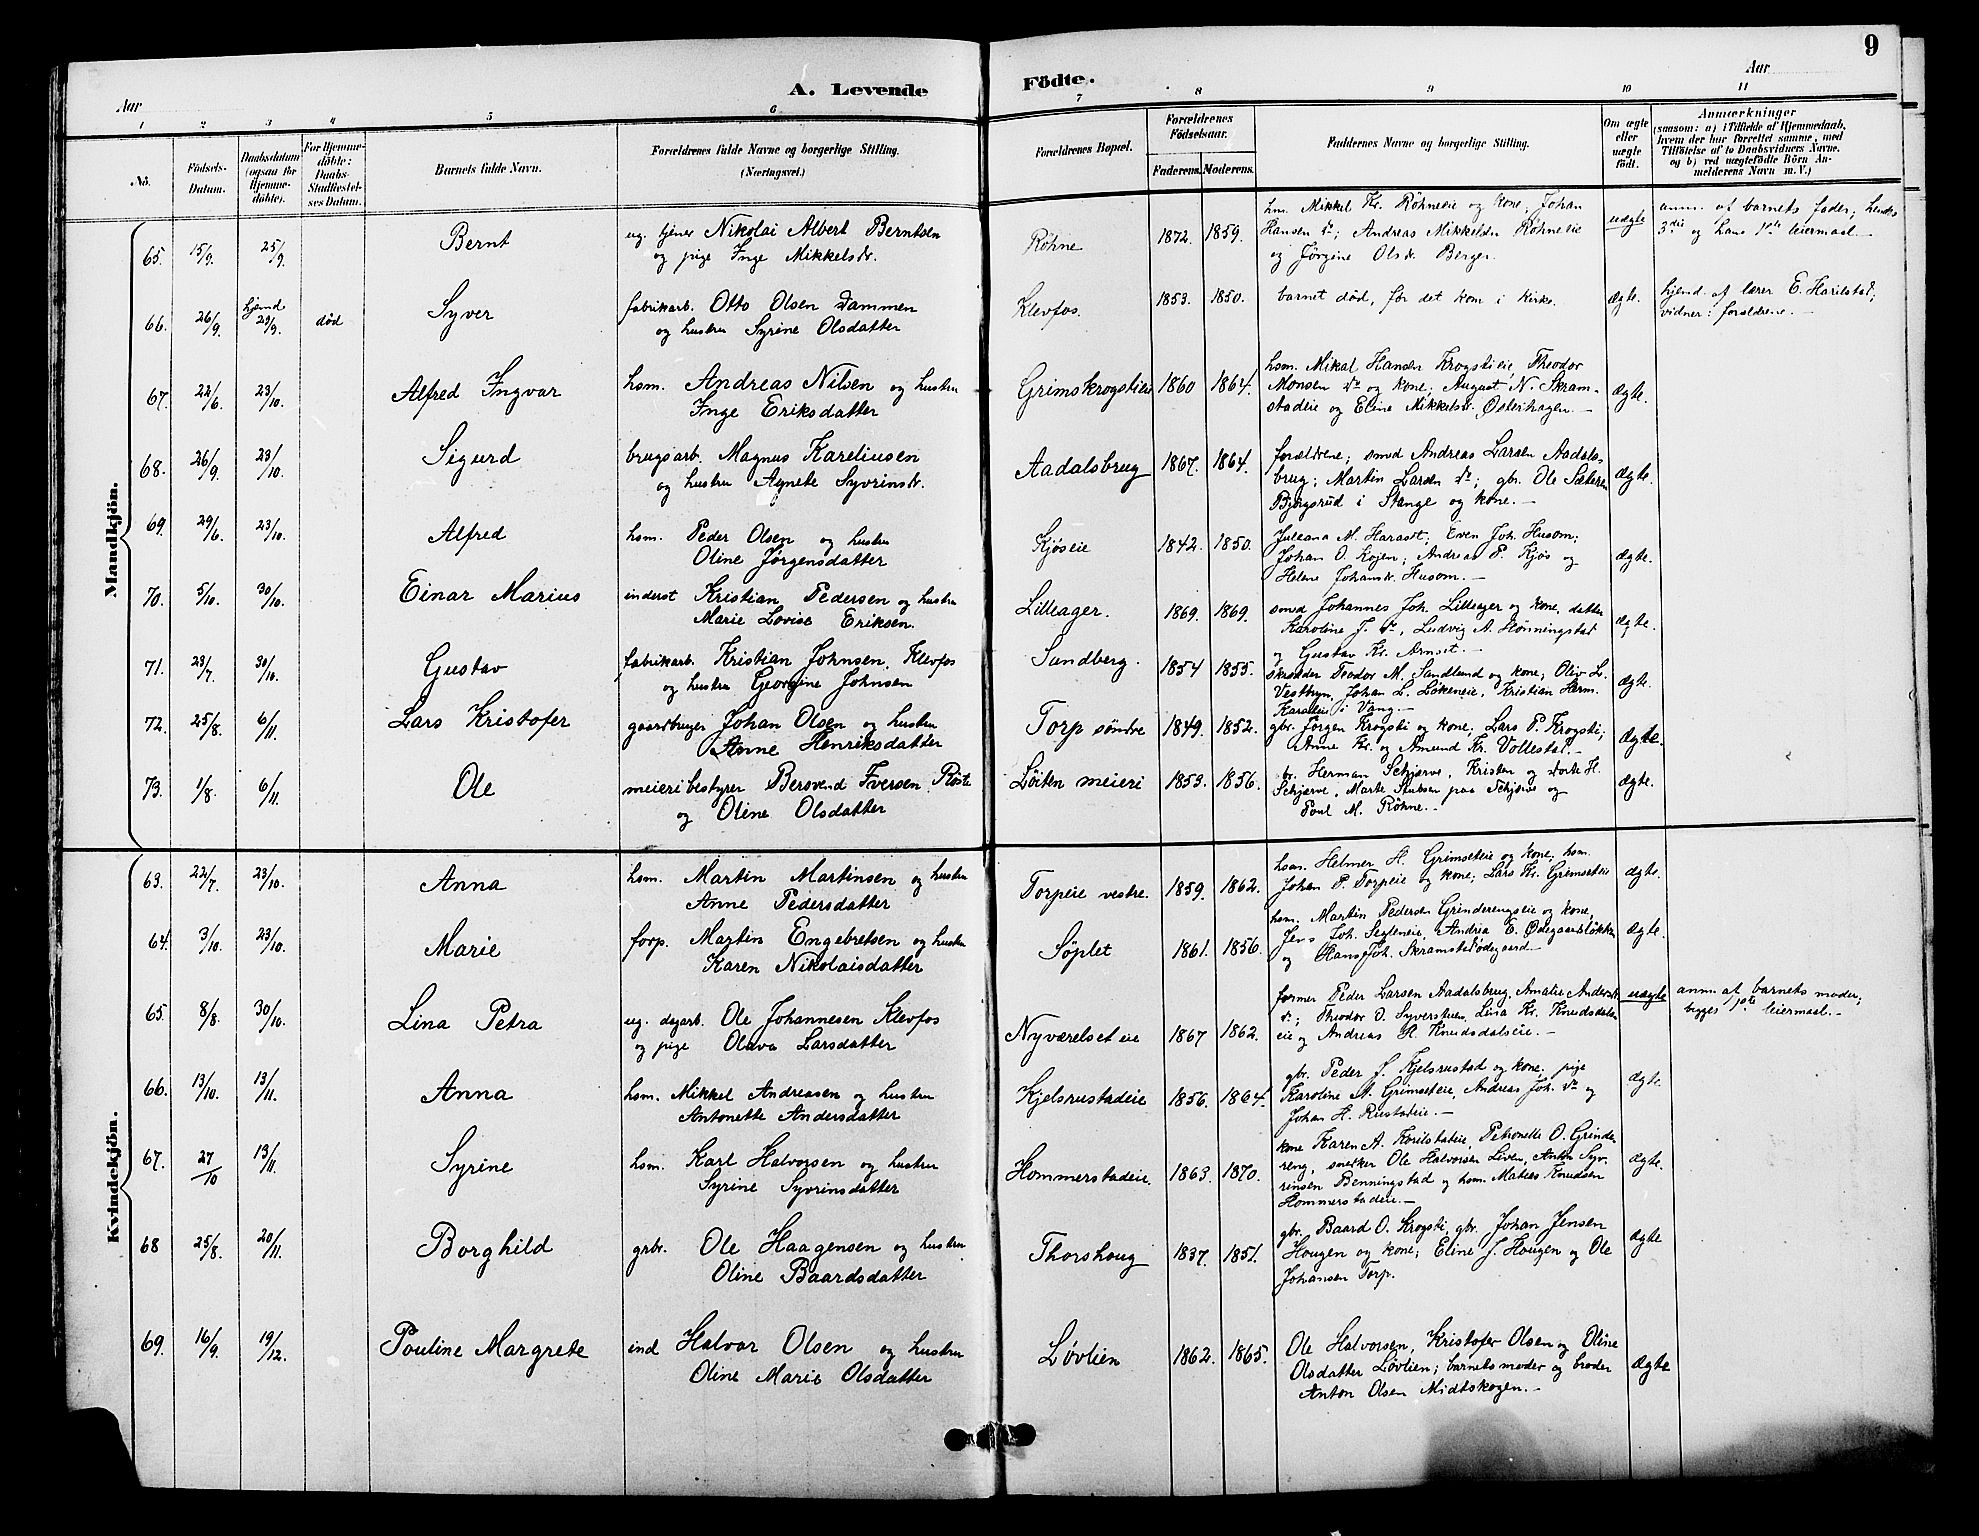 9
A. Levende Födte.
Aar
Aar
1 2 3 4 5 6 7 8 9 10 11
No.
Födsels-Datum.
Daabsdatum (ogsaa for Hjemme-döbte).
For Hjemme-döbte: Daabs-Stadfæstel-ses Datum.
Barnets fulde Navn.
Forældrenes fulde Navne og borgerlige Stilling. (Næringsvei.)
Forældrenes Bopæl.
Forældrenes Födselsaar.
Faderens. Moderens.
Faddernes Navne og borgerlige Stilling.
Om ægte eller uægte födt.
Anmærkninger
(saasom: a) i Tilfælde af Hjemmedaab,
hvem der har forrettet samme, med
Tilföielse af to Daabsvidners Navne,
og b) ved uægtefödte Börn An-
melderens Navn m. V.)
Mandkjön.
65. 15/9. 25/9. Bernt
ug. tjener Nikolai Albert Berntsen
og pige Inge Mikkelsdr.
Röhne 1872. 1859.
hm. Mikkel Kr. Röhneeie og kone, Johan
Hansen do; Andreas Mikkelsen Röhneeie
og Jørgine Olsdr. Berger.
uægte
anm. af barnets fader; hendes
3die og hans 1ste leiermaal.
66. 26/9. hjemd 29/9. död Syver
fabrikarb. Otto Olsen Dammen
og hustru Syrine Olsdatter
Klevfos. 1853. 1850.
barnet död, før det kom i kirke.
Ægte.
hjemd. af lærer E. Harilstad,
vidner: forældrene.
67. 22/6. 23/10. Alfred Ingvar
hsm. Andreas Nilsen og hustru
Inge Eriksdatter
Grimskrogstieie 1860 1864.
hsm. Mikal Hansen Krogstieie, Theodor
Monsen do og kone, August N. Skram-
stadeie og Eline Mikkelsdr. Østerhagen.
Ægte.
68. 26/9. 23/10. Sigurd
brugsarb. Magnus Kareliusen
og hustru Agnete Syvrinsdr.
Aadalsbrug 1867. 1864.
forældrene; smed Andreas Larsen Aadals-
brug; Martin Larsen do; gbr. Ole Sæteren
Bjørgsrud i Stange og kone.
Ægte.
69. 29/6. 23/10. Alfred
hsm. Peder Olsen og hustru
Oline Jørgensdatter
Kjöseie 1842. 1850.
Juleana M. Haraset; Even Joh. Husom;
Johan O. Lojen; Andreas P. Kjös og
Helene Johansdr. Husom.
Ægte.
70. 5/10. 30/10. Einar Marius
inderst Kristian Pedersen og hustru
Marie Lovise Eriksen.
Lilleager. 1869. 1869.
smed Johannes Joh. Lilleager og kone, datter
Karoline J. do, Ludvig A. Hønningstad
og Gustav Kr. Arnset.
Ægte.
71. 23/7. 30/10. Gustav
fabrikarb. Kristian Johnsen, Klevfos
og hustru Georgine Johnsen
Sundberg. 1854 1855.
skrædder Teodor M. Sandlund og kone, Oliv L.
Vestbyn, Johan L. Løkeneie, Kristian Herm.
i Vang.
Ægte.
72. 25/8. 6/11. Lars Kristofer
gaardbruger Johan Olsen og hustru
Anne Henriksdatter
Torp söndre 1849. 1852.
gbr. Jörgen Krogsti og kone; Lars P. Krogsti;
Anne Kr. og Amund Kr. Vollestad.
Ægte.
73. 1/8. 6/11. Ole
meieribestyrer Bersvend Iversen Röste
og Oline Olsdatter
Löiten meieri 1853. 1856.
br. Herman Schjerve, Kristen og Dorte H.
Schjerve, Marte Stubsen paa Schjerve og
Poul M. Röhne.
Ægte.
Kvindekjön.
63. 22/7. 23/10. Anna
hsm. Martin Martinsen og hustru
Anne Pedersdatter
Torpeie vestre. 1859. 1862.
hsm. Helmer H. Grimseteie og kone; hsm.
Johan P. Torpeie og kone; Lars Kr. Grimseteie
Ægte.
64. 3/10. 23/10. Marie
forp. Martin Engebretsen og hustru
Karen Nikolaisdatter
Söplet 1861. 1856.
hsm. Martin Pedersen Grinderengseie og kone,
Jens Joh. Segleneie, Andrea E. Ødegaardsløkken
og Hans Joh. Skramstadødegaard.
Ægte.
65. 8/8. 30/10. Lina Petra
ug. dagarb. Ole Johannesen Klevfos
og pige Olava Larsdatter
Nyværelset eie 1867 1862.
former Peder Larsen Aadalsbrug, Amalie Andersdr.
do; Theodor O. Syverstuen, Lina Kr. Knudsdalen
eie og Andreas A. Knudsdalseie.
uægte
anm. af barnets moder;
begges 1ste leiermaal.
66. 13/10. 13/11. Anna
hsm. Mikkel Andreasen og hustru
Antonette Andersdatter
Kjelsrustadeie 1856. 1864.
gbr. Peder J. Kjelsrustad og kone, pige
Karoline A. Grimseteie, Andreas Joh. do og
Johan H. Rustadeie.
Ægte.
67. 27/10 13/11. Syrine
hsm. Karl Halvorsen og hustru
Syrine Syvrinsdatter
Hommerstadeie. 1863. 1870.
kone Karen A. Korilstadeie, Petronelle O. Grinde-
reng, snekker Ole Halvorsen Liven, Anton Syv-
rinsen Benningstad og hsm. Mateas Knudsen
Hommerstadeie.
Ægte.
68 25/8. 20/11. Borghild
grbr. Ole Haagensen og hustru
Oline Baardsdatter
Thorshoug 1837. 1851.
gbr. Baard O. Krogsti, gbr. Johan Jensen
Hougen og kone; Eline J. Hougen og Ole
Johansen Torp.
Ægte
69. 16/9. 19/12. Pouline Margrete
ind Halvor Olsen og hustru
Oline Marie Olsdatter
Lövlien 1862. 1865.
Ole Halvorsen, Kristofer Olsen og Oline
Olsdatter Lövlien; barnets moder og broder
Anton Olsen Midtskogen.
Ægte